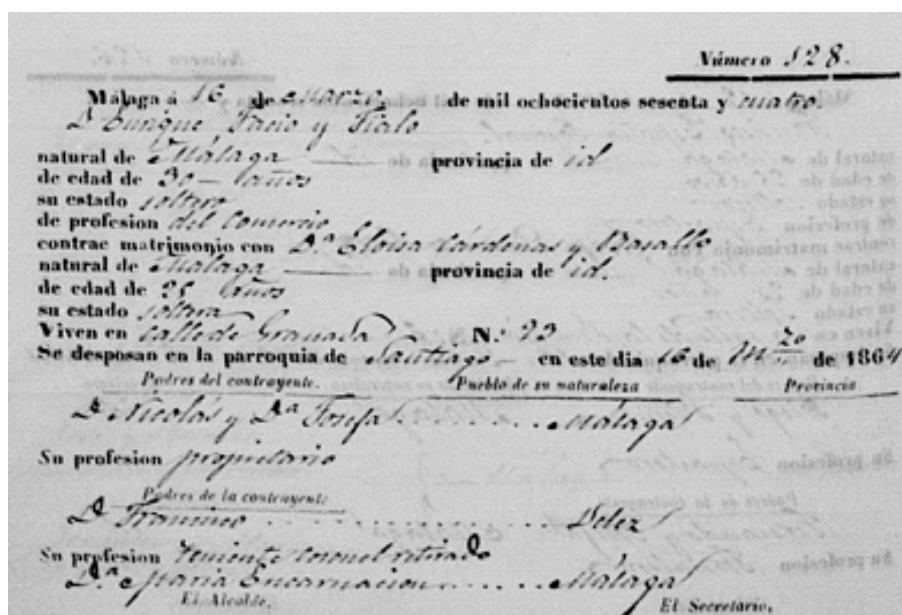 Número 128.
Málaga á 16 de Marzo de mil ochocientos sesenta y cuatro
D. Enrique y
natural de Málaga provincia de id
de edad de 30 años
su estado soltero
de profesion del Comercio
contrae matrimonio con D.ª Eloisa Cárdenas y
natural de Málaga provincia de id.
de edad de años
su estado soltera
Viven en calle de Granada N.º 23
Se desposan en la parroquia de Santiago en este dia 16 de Mzo de 1864
Padres del contrayente. Pueblo de su naturaleza Provincia
D. Nicolás y D.ª Josefa Málaga
Su profesion propietario
Padres de la contrayente
D. Velez
Su profesion teniente coronel retirado
D.ª Maria Encarnacion Málaga
El Alcalde, El Secretario,